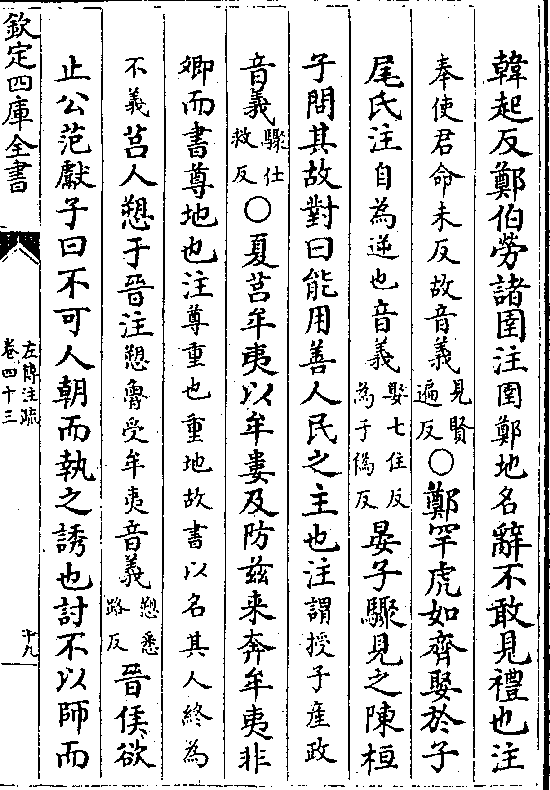 韓起反鄭伯勞諸圉注圉鄭地名辭不敢見禮也注
奉使君命未反故音義見賢遍反○鄭罕虎如齊娶於子
尾氏注自為逆也音義娶七住反為于偽反晏子驟見之陳桓
子問其故對曰能用善人民之主也注謂授子產政
音義驟仕救反○夏莒牟夷以牟婁及防茲来奔牟夷非
卿而書尊地也注尊重也重地故書以名其人終為
不義莒人愬于晉注愬魯受牟夷音義愬悉路反晉侯欲
止公范獻子曰不可人朝而執之誘也討不以師而
欽定四庫全書
左傳注疏
卷四十三
十九